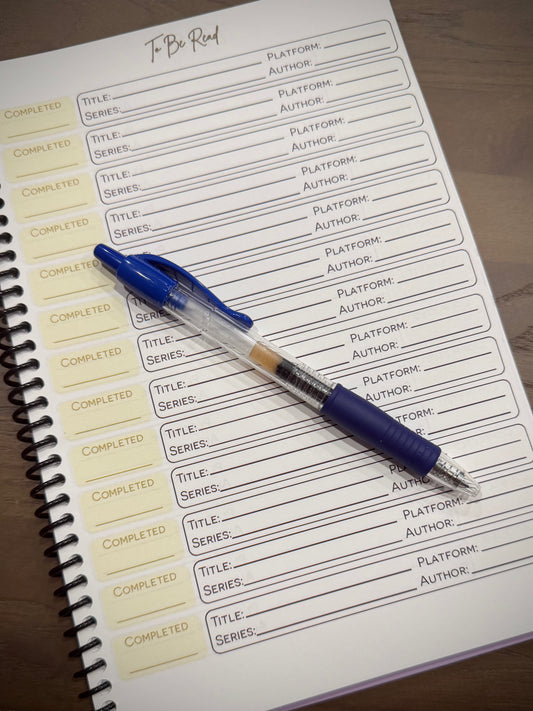 To Be Read
Completed Title: Platform:
Series: Author:
Completed Title: Platform:
Series: Author:
Completed Title: Platform:
Series: Author:
Completed Title: Platform:
Series: Author:
Completed Platform:
Author:
Completed Platform:
Series: Author:
Completed Title: Platform:
Series: Author:
Completed Title: Platform:
Series: Author:
Completed Title: Platform:
Series: Author:
Completed Title: Platform:
Series: Author:
Completed Title:
Series:
Completed Title: Platform:
Series: Author:
Completed Title: Platform:
Series: Author: